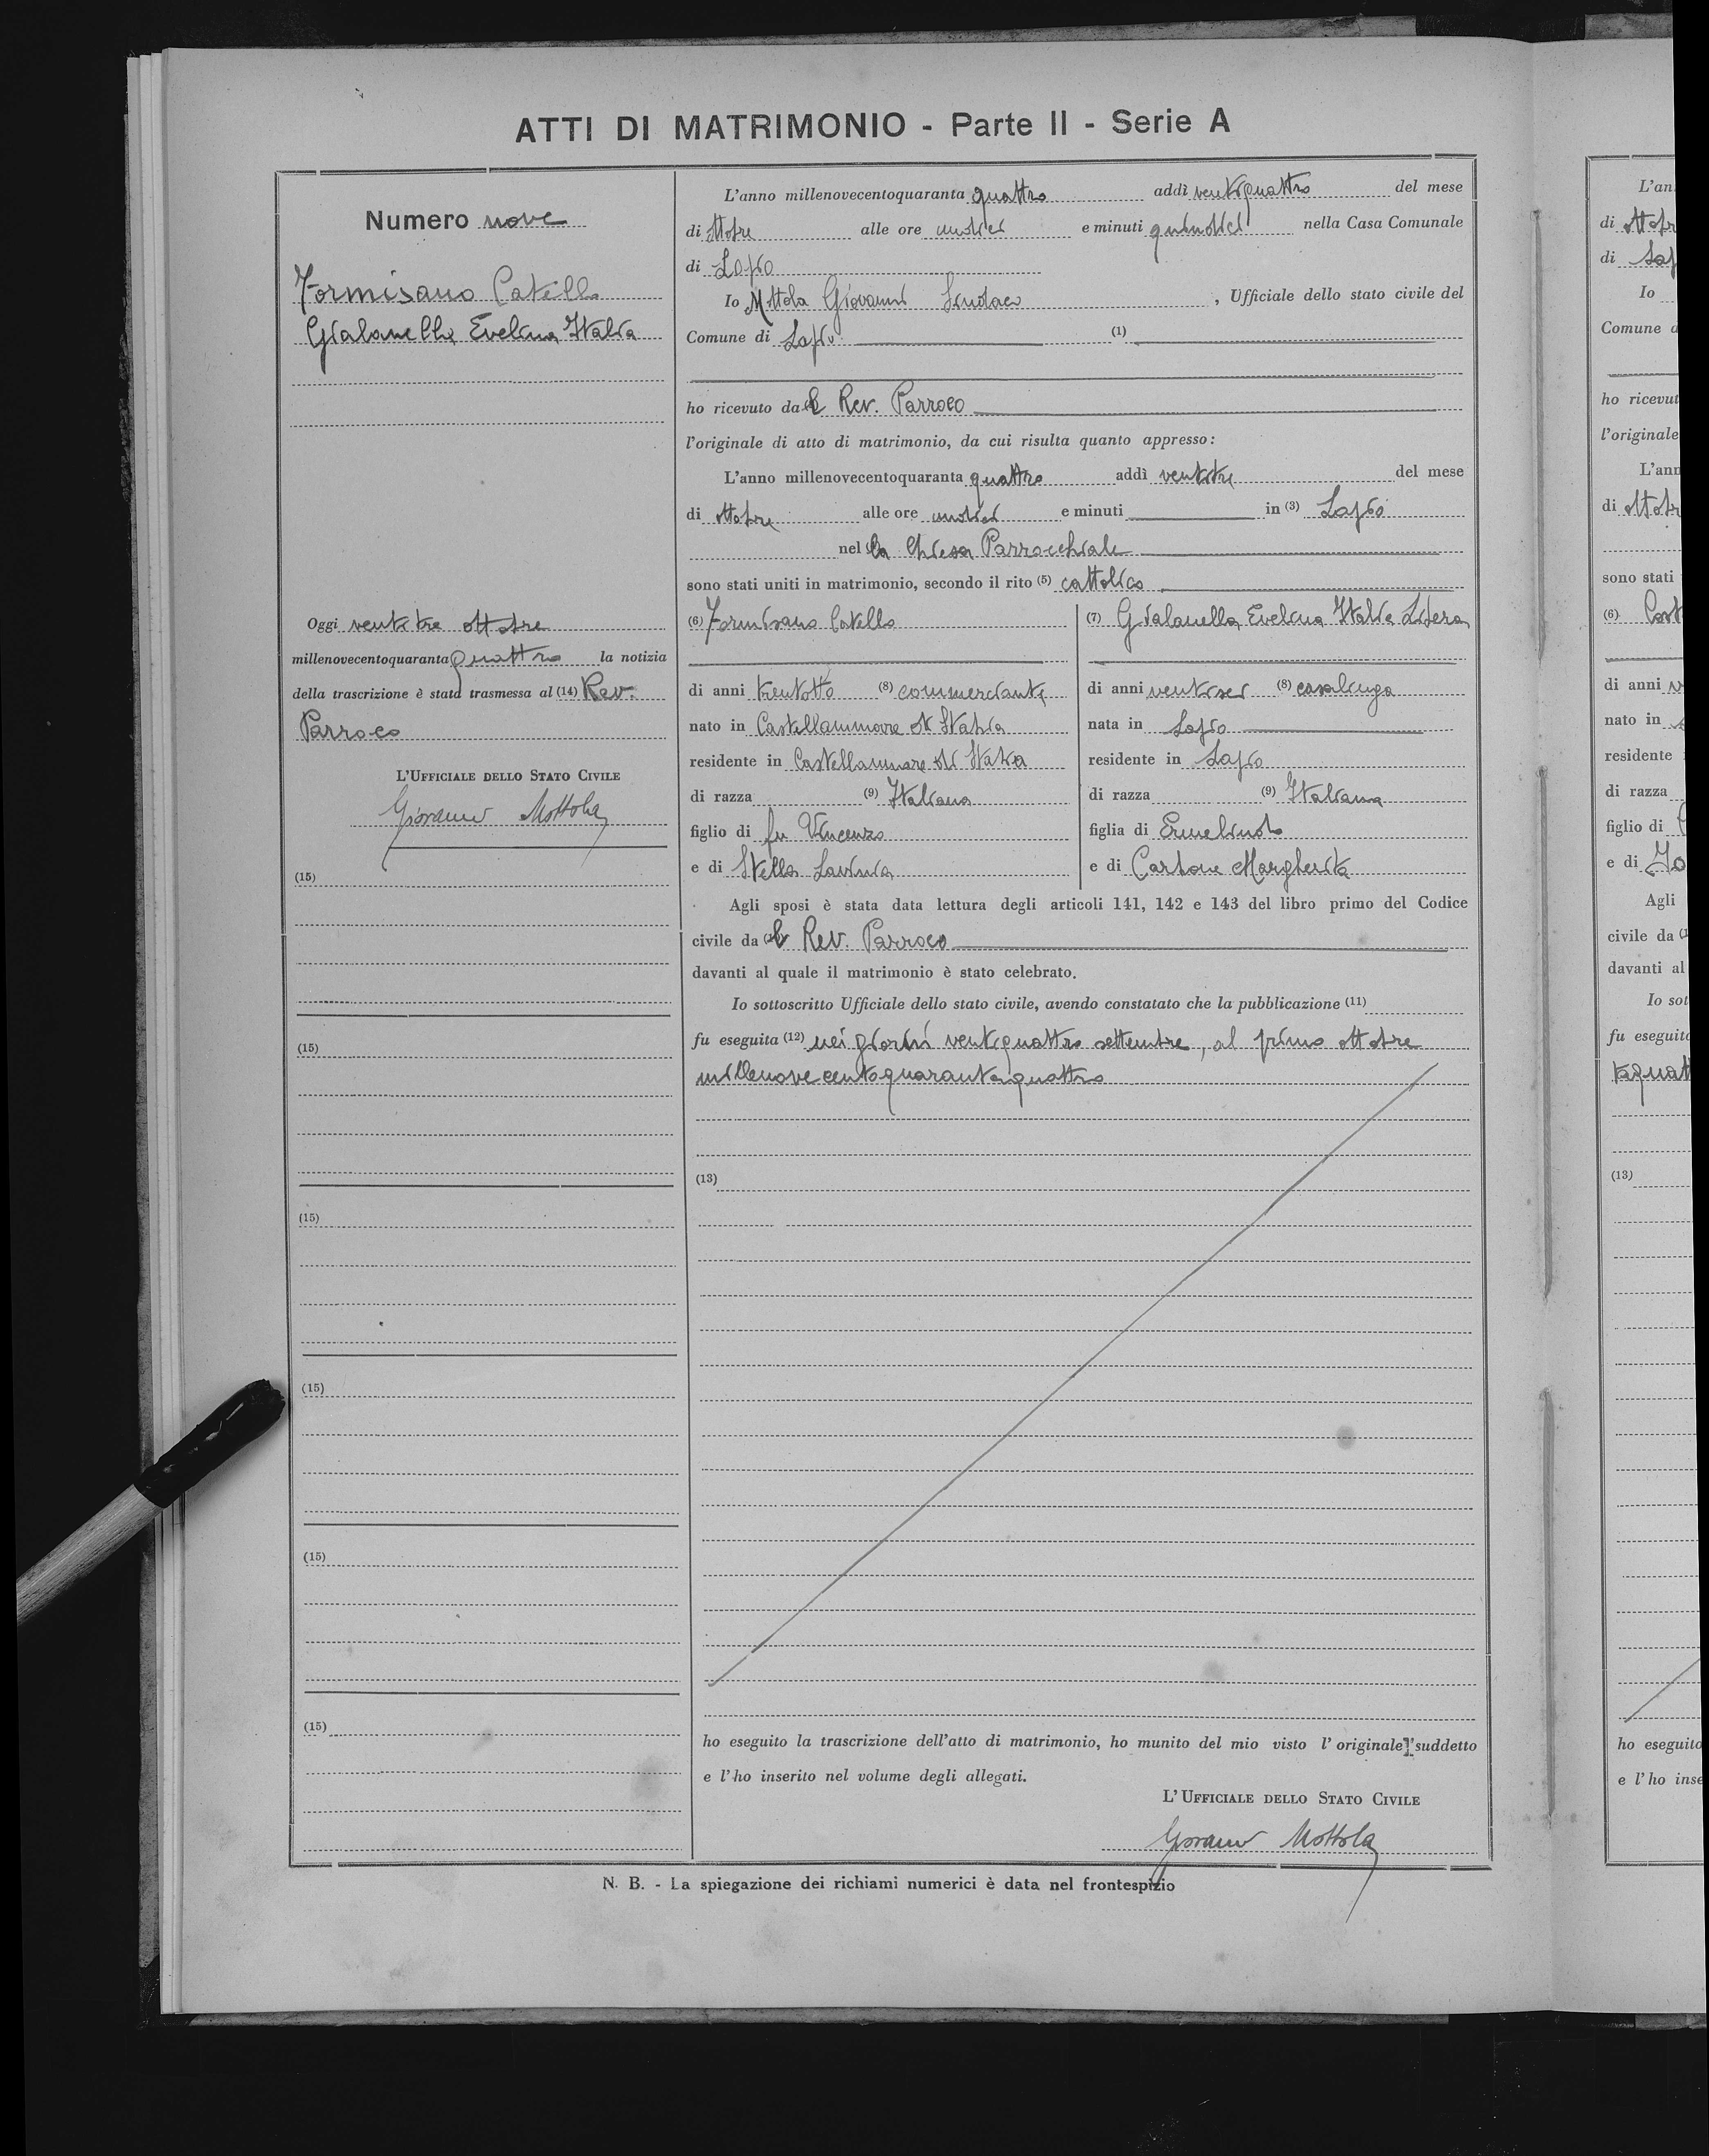 ATTI DI MATRIMONIO - Parte II - Serie A
Numero nove
Formisano Catello
Gialanella Evelina Italia
Oggi ventitre ottobre
millenovecentoquaranta quattro la notizia
della trascrizione è stata trasmessa al (14) Rev.
Parroco
L'UFFICIALE DELLO STATO CIVILE
Giovanni Mottola
(15)
(15)
(15)
(15)
(15)
(15)
L'anno millenovecentoquaranta quattro addì ventiquattro del mese
di ottobre alle ore undici e minuti quindici nella Casa Comunale
di Lapio
Io Mottola Giovanni Sindaco, Ufficiale dello stato civile del
Comune di Lapio (1)
ho ricevuto dal Rev. Parroco
l'originale di atto di matrimonio, da cui risulta quanto appresso:
L'anno millenovecentoquaranta quattro addì ventitre del mese
di ottobre alle ore undici e minuti in (3) Lapio
nella Chiesa Parrocchiale
sono stati uniti in matrimonio, secondo il rito (5) cattolico
(6) Formisano Catello
di anni trentotto (8) commerciante
nato in Castellammare di Stabia
residente in Castellammare di Stabia
di razza (9) Italiana
figlio di fu Vincenzo
e di Stella Lavinia
(7) Gialanella Evelina Italia Libera
di anni ventisei (8) casalinga
nata in Lapio
residente in Lapio
di razza (9) Italiana
figlia di Ermelindo
e di Carbone Margherita
Agli sposi è stata data lettura degli articoli 141, 142 e 143 del libro primo del Codice
civile dal Rev. Parroco
davanti al quale il matrimonio è stato celebrato.
Io sottoscritto Ufficiale dello stato civile, avendo constatato che la pubblicazione (11)
fu eseguita (12) nei giorni ventiquattro settembre, al primo ottobre
millenovecentoquarantaquattro
(13)
ho eseguito la trascrizione dell'atto di matrimonio, ho munito del mio visto l'originale suddetto
e l'ho inserito nel volume degli allegati.
L'UFFICIALE DELLO STATO CIVILE
Giovanni Mottola
N. B. - La spiegazione dei richiami numerici è data nel frontespizio
L'an
di ottobr
di Lap
Io
Comune d
ho ricevut
l'originale
L'ann
di ottobr
sono stati
(6)
di anni
nato in
residente
di razza
figlio di
e di
Agli
civile da
davanti al
Io sot
fu eseguito
taquat
(13)
ho eseguito
e l'ho inse